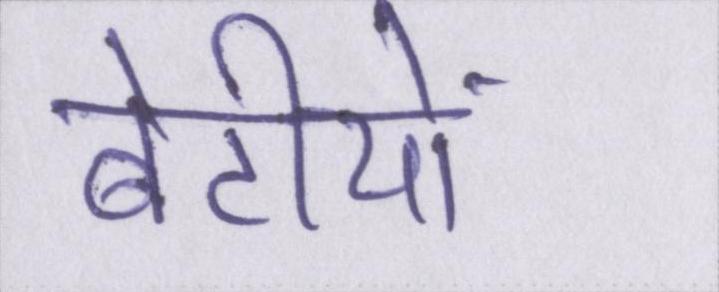 बेटीयों